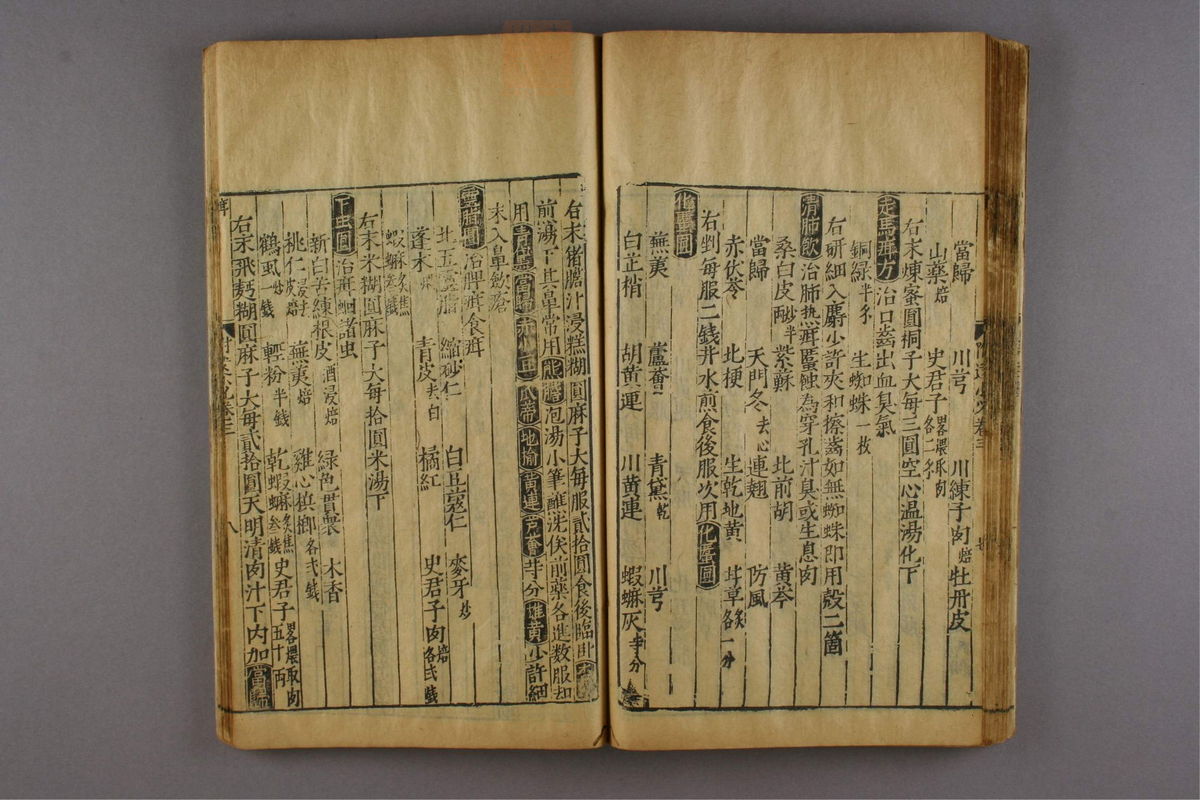 當歸 川芎 川練子肉焙 牡丹皮
山藥焙 史君子畧煨取肉各二多
右末煉蜜圓桐子大每三圓空心温湯化下
走馬疳方 治口齒出血臭氣
銅綠半多 生蜘蛛一枚
右研細入麝小許夾和擦齒如無蜘蛛即用殼二箇
清肺飲 治肺热疳䘌蝕為穿孔汁臭或生息肉
桑白皮炒半兩 紫蘇 北前胡 黃芩
當歸 天門冬去心 連翹 防風
赤伏苓 北梗 生乾地黃 甘草各炙一分
右剉每服二銭井水煎食後服次用化䘌圓
化䘌圓
蕪荑 蘆薈 青黛乾 川芎
白芷梢 胡黃連 川黃連 蝦蟆灰等分
右末猪膽汁浸糕糊圓麻子大每服貳拾圓食後臨卧
煎湯下其鼻常用熊膽泡湯小筆蘸洗俟前藥各進数服却
用青黛當歸赤小豆瓜帝地榆黃連芦薈等分雄黃少許細
末入鼻歛瘡
靈脂圓 治脾疳食疳
北五靈脂 縮砂仁 白豆蔻仁 麥牙炒
蓬朮 青皮去白 橘紅 史君子肉焙各弍錢
蝦蟆炙焦叁錢
右末米糊圓麻子大每拾圓米湯下
下虫圓 治疳蛔諸虫
新白苦練根皮酒浸焙 綠色貫衆 木香
桃仁浸去皮焙 蕪荑焙 雞心檳榔各弍錢
鶴虱炒一錢 輕粉半錢 乾蝦蟆炙焦叁錢 史君子畧煨取肉五十
右末飛麪糊圓麻子大每貳拾圓天明清肉汁下内加當歸
八